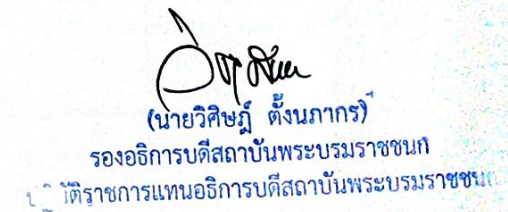 (นายวิศิษฎ์ ตั้งนภากร)
รองอธิการบดีสถาบันพระบรมราชชนก
ราชการแทนอธิการบดีสถาบันพระบรมราชชนก